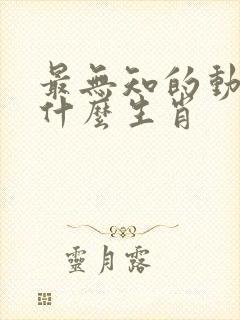 最無知的動
什麼生肖
靈月露